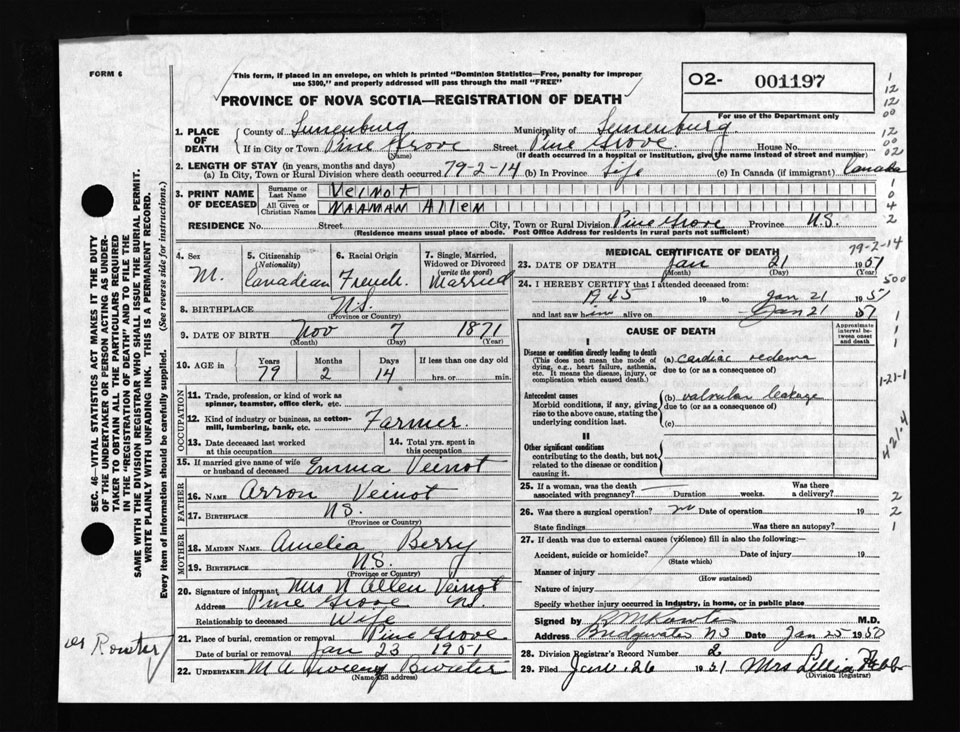 FORM 6
This form, if placed in an envelope, on which is printed "Dominion Statistics—Free, penalty for improper
use $300," and properly addressed will pass through the mail "FREE"
PROVINCE OF NOVA SCOTIA—REGISTRATION OF DEATH
O2- 001197
For use of the Department only
1. PLACE OF DEATH
County of Lunenburg Municipality of Lunenburg
If in City or Town Pine Grove (Name) Street Pine Grove House No.
(If death occurred in a hospital or institution, give the name instead of street and number)
2. LENGTH OF STAY (in years, months and days)
(a) In City, Town or Rural Division where death occurred 79-2-14 (b) In Province Life (c) In Canada (if immigrant) Canada
3. PRINT NAME OF DECEASED
Surname or Last Name Veinot
All Given or Christian Names Naaman Allen
RESIDENCE No. Street City, Town or Rural Division Pine Grove Province N.S.
(Residence means usual place of abode. Post Office Address for residents in rural parts not sufficient)
4. Sex M.
5. Citizenship (Nationality) Canadian
6. Racial Origin French
7. Single, Married, Widowed or Divorced (write the word) Married
8. BIRTHPLACE N.S.
(Province or Country)
9. DATE OF BIRTH Nov 7 1871
(Month) (Day) (Year)
10. AGE in Years 79 Months 2 Days 14 If less than one day old hrs. or min.
OCCUPATION
11. Trade, profession, or kind of work as spinner, teamster, office clerk, etc.
12. Kind of industry or business, as cotton-mill, lumbering, bank, etc. Farmer.
13. Date deceased last worked at this occupation
14. Total yrs. spent in this occupation
15. If married give name of wife or husband of deceased Emma Veinot
FATHER
16. NAME Arron Veinot
17. BIRTHPLACE N.S.
(Province or Country)
MOTHER
18. MAIDEN NAME Amelia Berry
19. BIRTHPLACE N.S.
(Province or Country)
20. Signature of informant Mrs N Allen Veinot
Address Pine Grove N.S.
Relationship to deceased Wife
21. Place of burial, cremation or removal Pine Grove
Date of burial or removal Jan 23 1951
22. UNDERTAKER
(Name and address)
MEDICAL CERTIFICATE OF DEATH
79-2-14
23. DATE OF DEATH Jan 21 1951
(Month) (Day) (Year)
24. I HEREBY CERTIFY that I attended deceased from:
19 to Jan 21 195
and last saw him alive on Jan 21
CAUSE OF DEATH
Approximate interval between onset and death
I
Disease or condition directly leading to death
(This does not mean the mode of dying, e.g., heart failure, asthenia, etc. It means the disease, injury, or complication which caused death.)
(a) cardiac oedema
due to (or as a consequence of)
Antecedent causes
Morbid conditions, if any, giving rise to the above cause, stating the underlying condition last.
(b) valvular leakage
due to (or as a consequence of)
(c)
II
Other significant conditions
contributing to the death, but not related to the disease or condition causing it.
25. If a woman, was the death associated with pregnancy? Duration weeks. Was there a delivery?
26. Was there a surgical operation? no Date of operation 19
State findings Was there an autopsy?
27. If death was due to external causes (violence) fill in also the following:
Accident, suicide or homicide? Date of injury 19
(State which)
Manner of injury
(How sustained)
Nature of injury
Specify whether injury occurred in industry, in home, or in public place
Signed by M.D.
Address Bridgewater NS Date Jan 25 1950
28. Division Registrar's Record Number 2
29. Filed 26 1951 Mrs
(Division Registrar)
SEC. 46—VITAL STATISTICS ACT MAKES IT THE DUTY
OF THE UNDERTAKER OR PERSON ACTING AS UNDER-
TAKER TO OBTAIN ALL THE PARTICULARS REQUIRED
IN THE "REGISTRATION OF DEATH" AND TO FILE THE
SAME WITH THE DIVISION REGISTRAR WHO SHALL ISSUE THE BURIAL PERMIT.
WRITE PLAINLY WITH UNFADING INK. THIS IS A PERMANENT RECORD.
Every item of information should be carefully supplied. (See reverse side for instructions.)
500
1-21-1
421.4